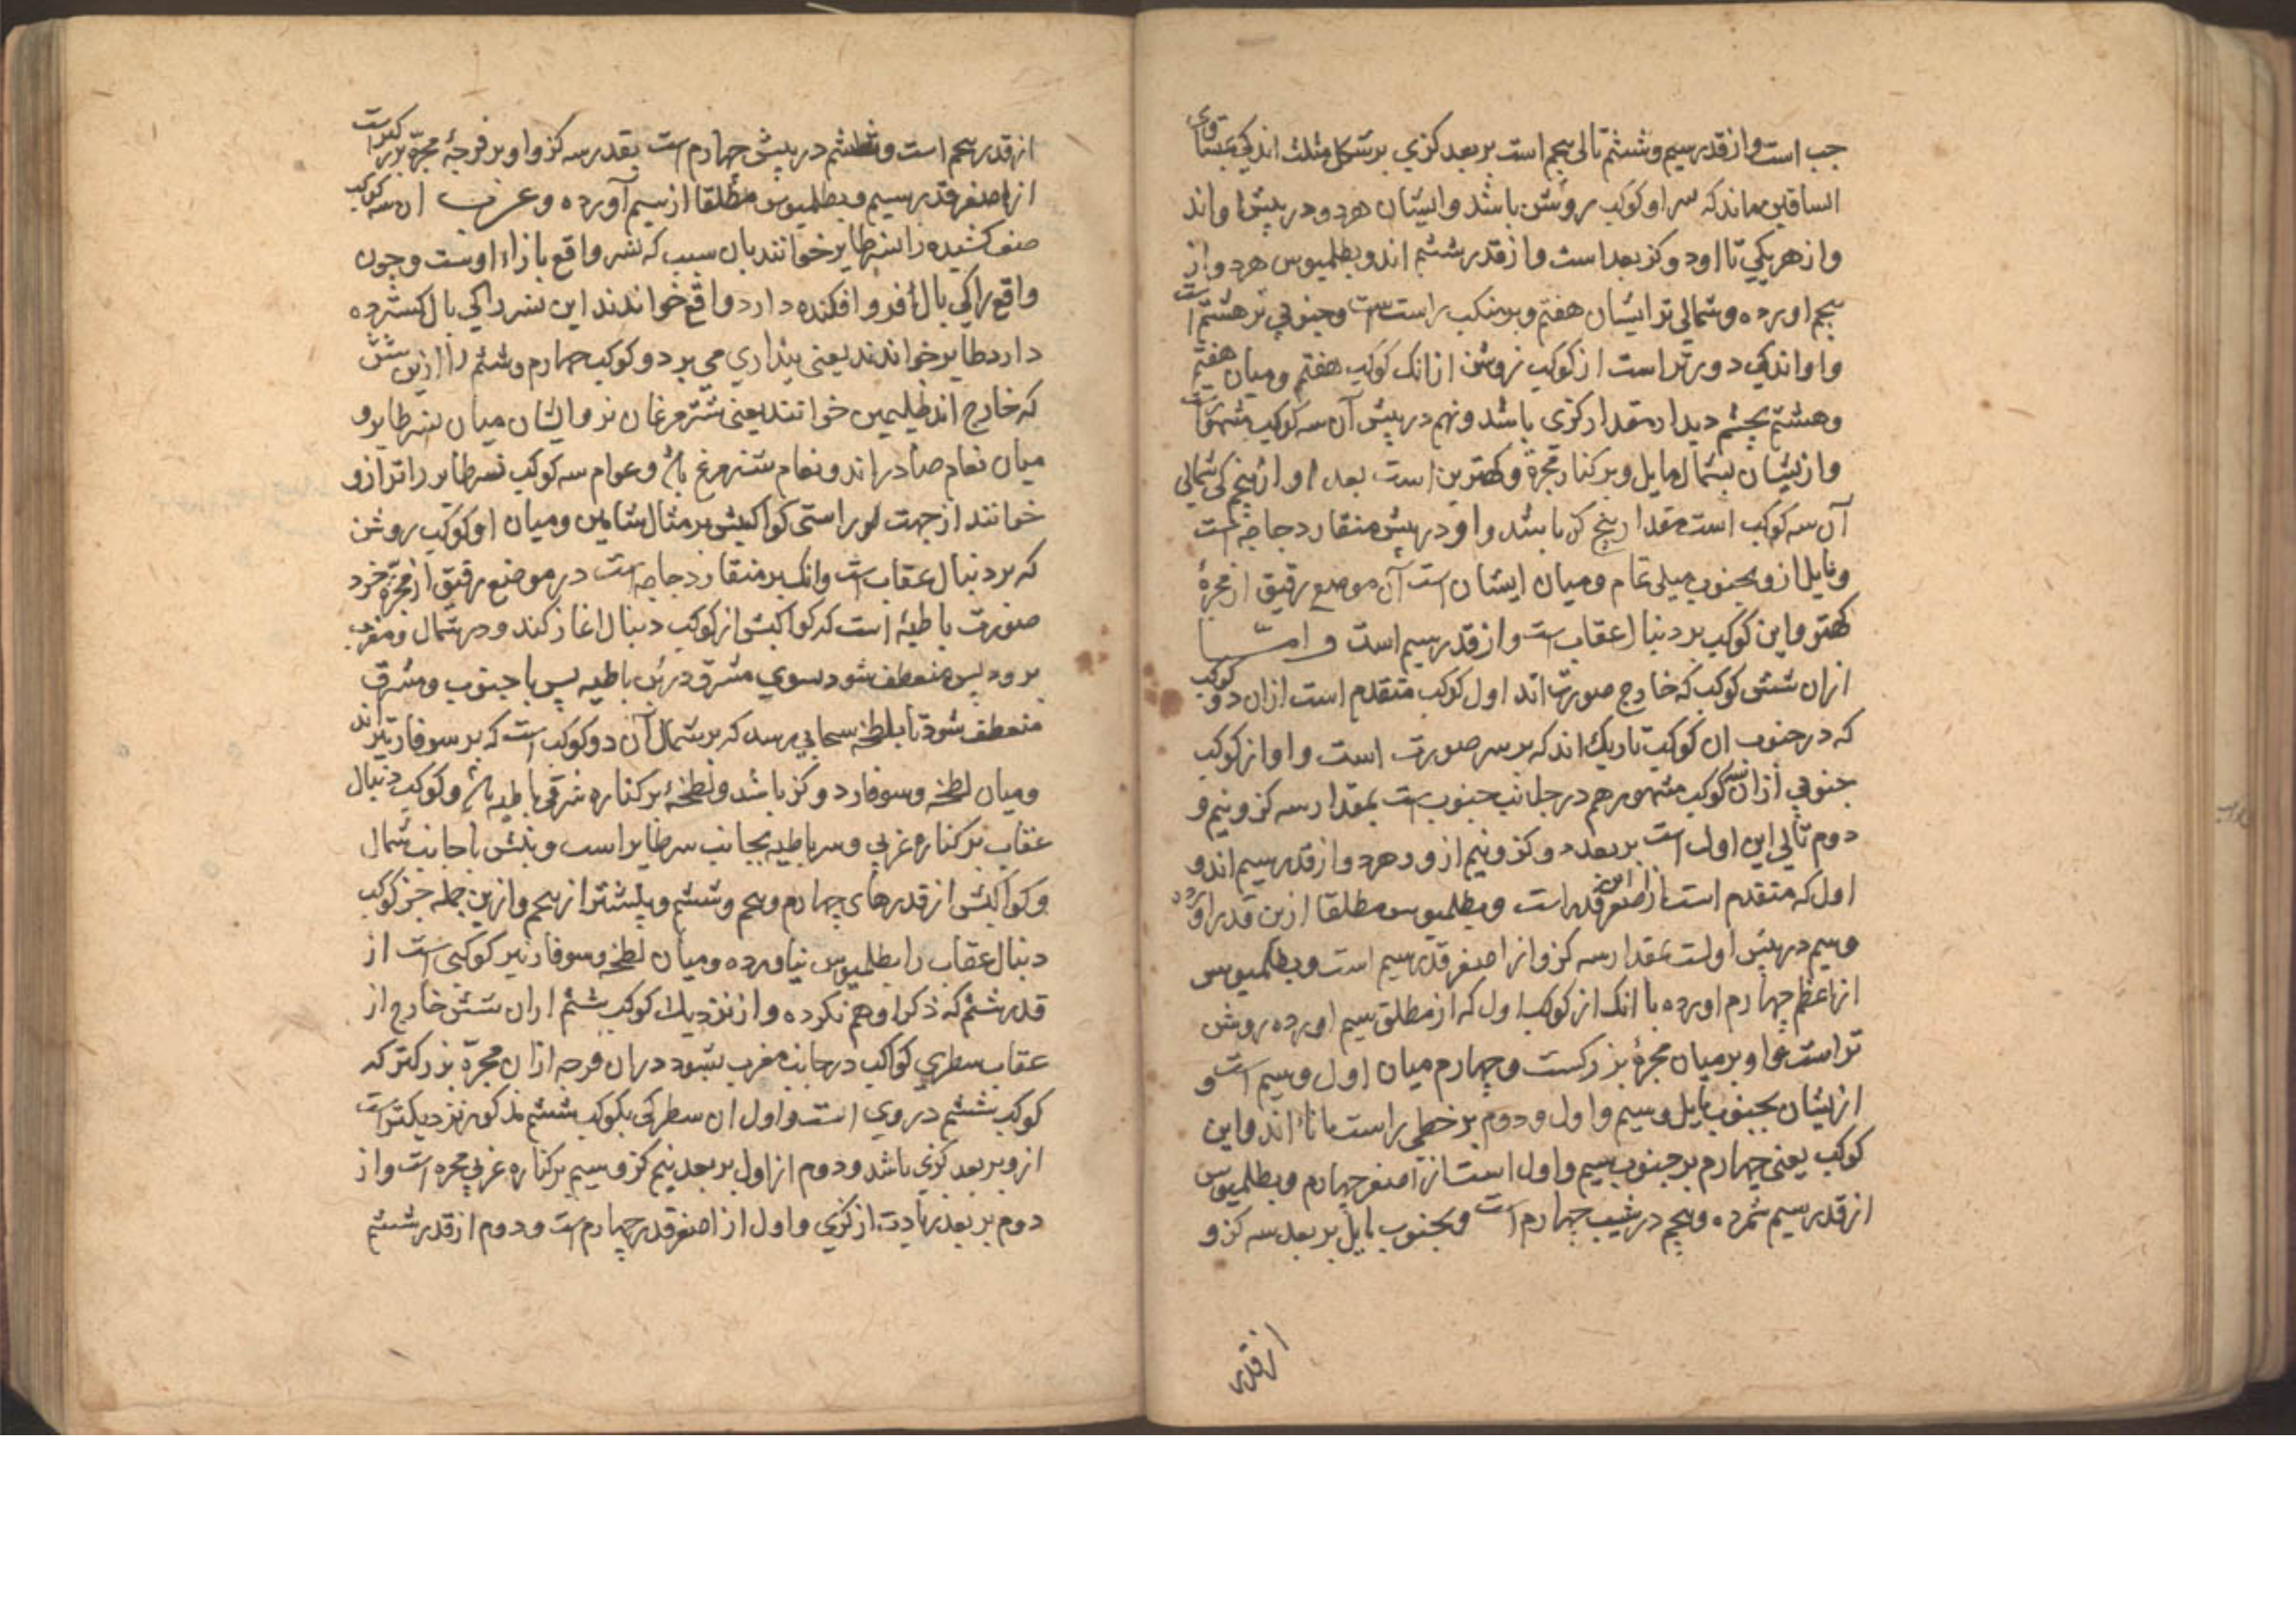 جب است و از قدر سیم و ششم تالی پنجم است بر بعد کزی بر شکل مثلث اندکی بمتساوی
الساقین ماند که سر او کوکب روشن باشد و ایشان هر دو در پیش او اند
و از هر یکی تا او دو کز بعد است و از قدر ششم اند و بطلمیوس هر دو از
پنجم اورده و شمالی تر ایشان هفتم و بر منکب راست است و جنوبی تر هشتم است
و او اندکی دورتر است از کوکب روشن از انک کوکب هفتم و میان هفتم
و هشتم بچشم دیدار مقدار کزی باشد و نهم در پیش آن سه کوکب مشهور است
و ازیشان بشمال مایل و بر کنار مجرّه و کهترین است بعد او از پنجم کی شمالی
آن سه کوکب است مقدار پنج کز باشد و او در پیش منقار دجاجه است
و مایل ازو بجنوب میلی تمام و میان ایشان است آن موضع رقیق از مجرهٔ
کهتر و این کوکب بر دنبال عقاب است و از قدر سیم است و امّــا
ازان شش کوکب که خارج صورت اند اول کوکب متقدم است ازان دو کوکب
که در جنوب ان کوکب تاریک اند که بر سر صورت است و او از کوکب
جنوبی ازان سه کوکب مشهور هم در جانب جنوب است بمقدار سه کز و نیم و
دوم تالی این اول است بر بعد دو کز و نیم ازو و هر دو از قدر سیم اند و
اول که متقدم است از اصغر این قدر است و بطلمیوس مطلقا ازین قدر اورده
و سیم در پیش اولست بمقدار سه کز و از اصغر قدر سیم است و بطلمیوس
از اعظم چهارم اورده با انک از کوکب اول که از مطلق سیم اورده روشن
تر است و او بر میان مجرهٔ بزرکست و چهارم میان اول و سیم است و
ازیشان بجنوب مایل و سیم و اول و دوم بر خطی راست مانا اند و این
کوکب یعنی چهارم بر جنوب سیم و اول است از اصغر چهارم و بطلمیوس
از قدر سیم شمرده و پنجم در شیب چهارم است و بجنوب مایل بر بعد سه کز و
از قدر
از قدر پنجم است و ششم در پیش چهارم است بقدر سه کز و او بر فرجهٔ مجرّه بزرکتر است
از اصغر قدر سیم و بطلمیوس مطلقا از سیم آورده و عرب ان سه کوکب
صف کشیده را نسر طایر خوانند بان سبب که نسر واقع بازاء اوست و چون
واقع را کی بال فرو افکنده دارد واقع خواندند این نسر را کی بال کسترده
دارد طایر خواندند یعنی پنداری می پرد دو کوکب چهارم و ششم را ازین شش
که خارج اند ظلیمین خوانند یعنی شتر مرغان نر و ایشان میان نسر طایر و
میان نعام صادر اند و نعام شتر مرغ باشد و عوام سه کوکب نسر طایر را ترازو
خوانند از جهت راستی کواکبش بر مثال شاهین و میان او کوکب روشن
که بر دنبال عقاب است و انک بر منقار دجاجه است در موضع رقیق از مجرّه خرد
صورت باطیهٔ است که کواکبش از کوکب دنبال اغاز کند و در شمال و مغرب
برود پس منعطف شود بسوی مشرق درین باطیه پس با جنوب و مشرق
منعطف شود تا بلطخهٔ سحابی رسد که بر شمال آن دو کوکب است که بر سوفار تیر اند
و میان لطخه و سوفار دو کز باشد و لطخهٔ بر کناره شرقی باطیه باشد و کوکب دنبال
عقاب بر کناره غربی و سر باطیه بجانب سرطایر است و بنش با جانب شمال
و کواکبش از قدرهای چهارم و پنجم و ششم و بیشتر از پنجم و ازین جمله جز کوکب
دنبال عقاب را بطلمیوس نیاورده و میان لطخه و سوفار تیر کوکبی است از
قدر ششم که ذکر او هم نکرده و از نزدیک کوکب ششم ازان شش خارج از
عقاب سطری کواکب در جانب مغرب بشود دران فرجه ازان مجرّه بزرکتر که
کوکب ششم در وی است و اول ان سطر کی بکوکب ششم مذکور نزدیکتر است
ازو بر بعد کزی باشد و دوم از اول بر بعد نیم کز و سیم بر کناره غربی مجره است و از
دوم بر بعد زیادت از کزی و اول از اصغر قدر چهارم است و دوم از قدر ششم